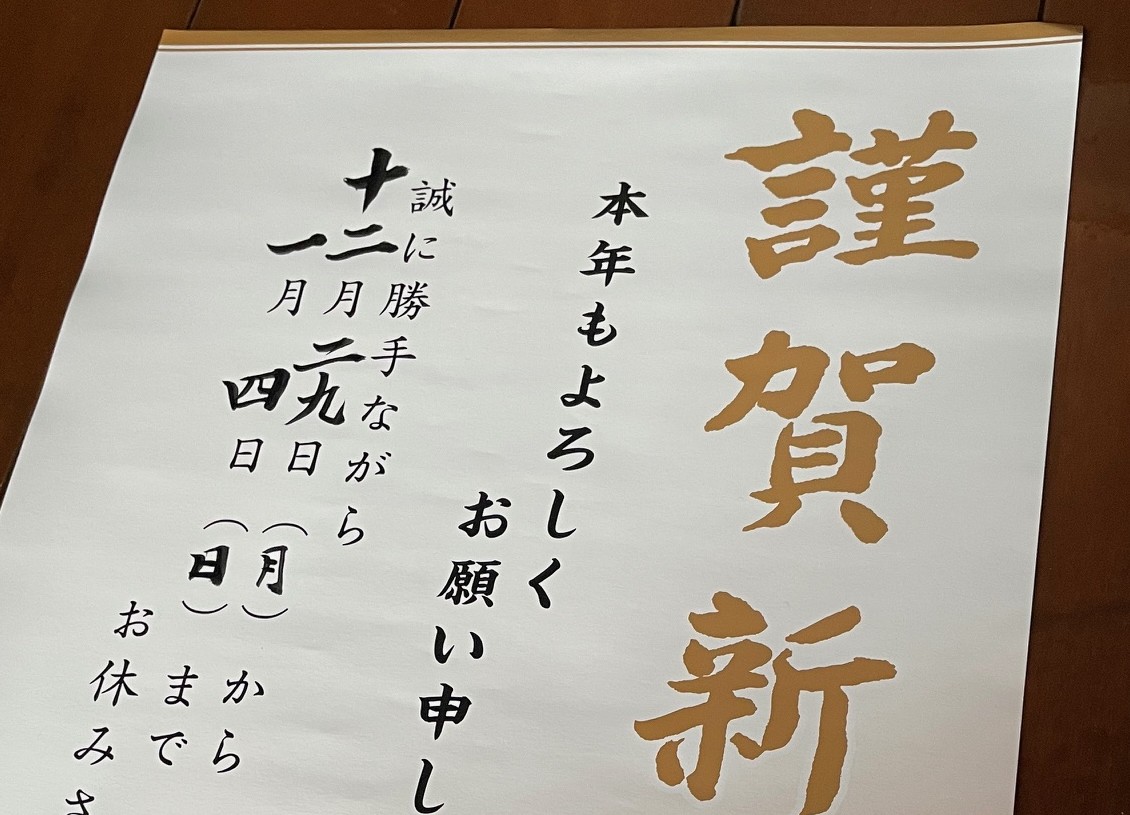 謹賀新
本年もよろしく
お願い申し
誠に勝手ながら
十二月二九日（月）から
一月四日（日）まで
お休みさ